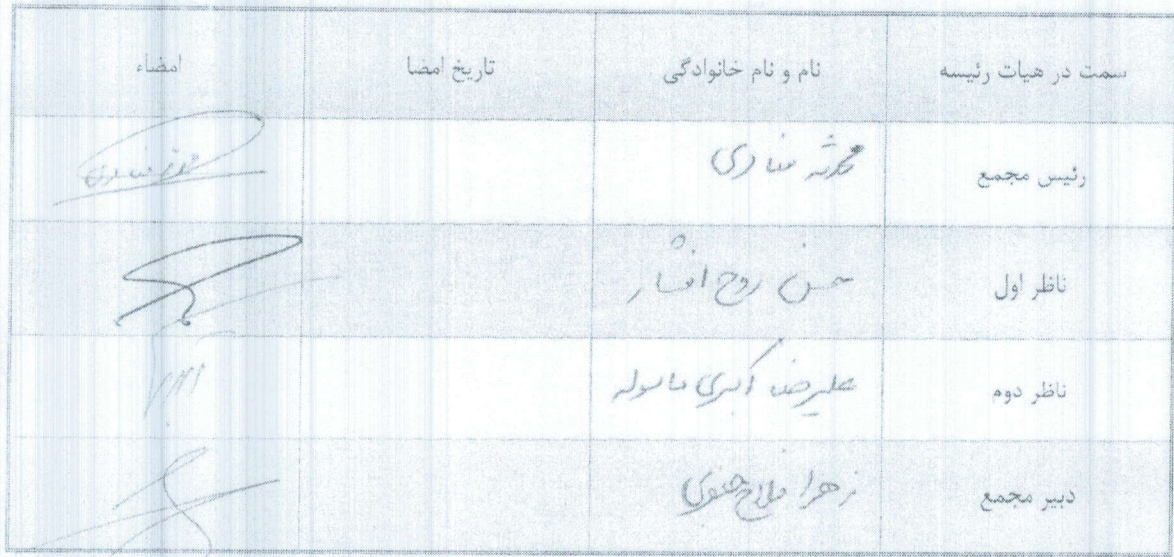 سمت در هیات رئیسه نام و نام خانوادگی تاریخ امضا امضاء
رئیس مجمع محدثه
ناظر اول حسن روح افشار
ناظر دوم علیرضا اکبری ماسوله
دبیر مجمع زهرا فلاح